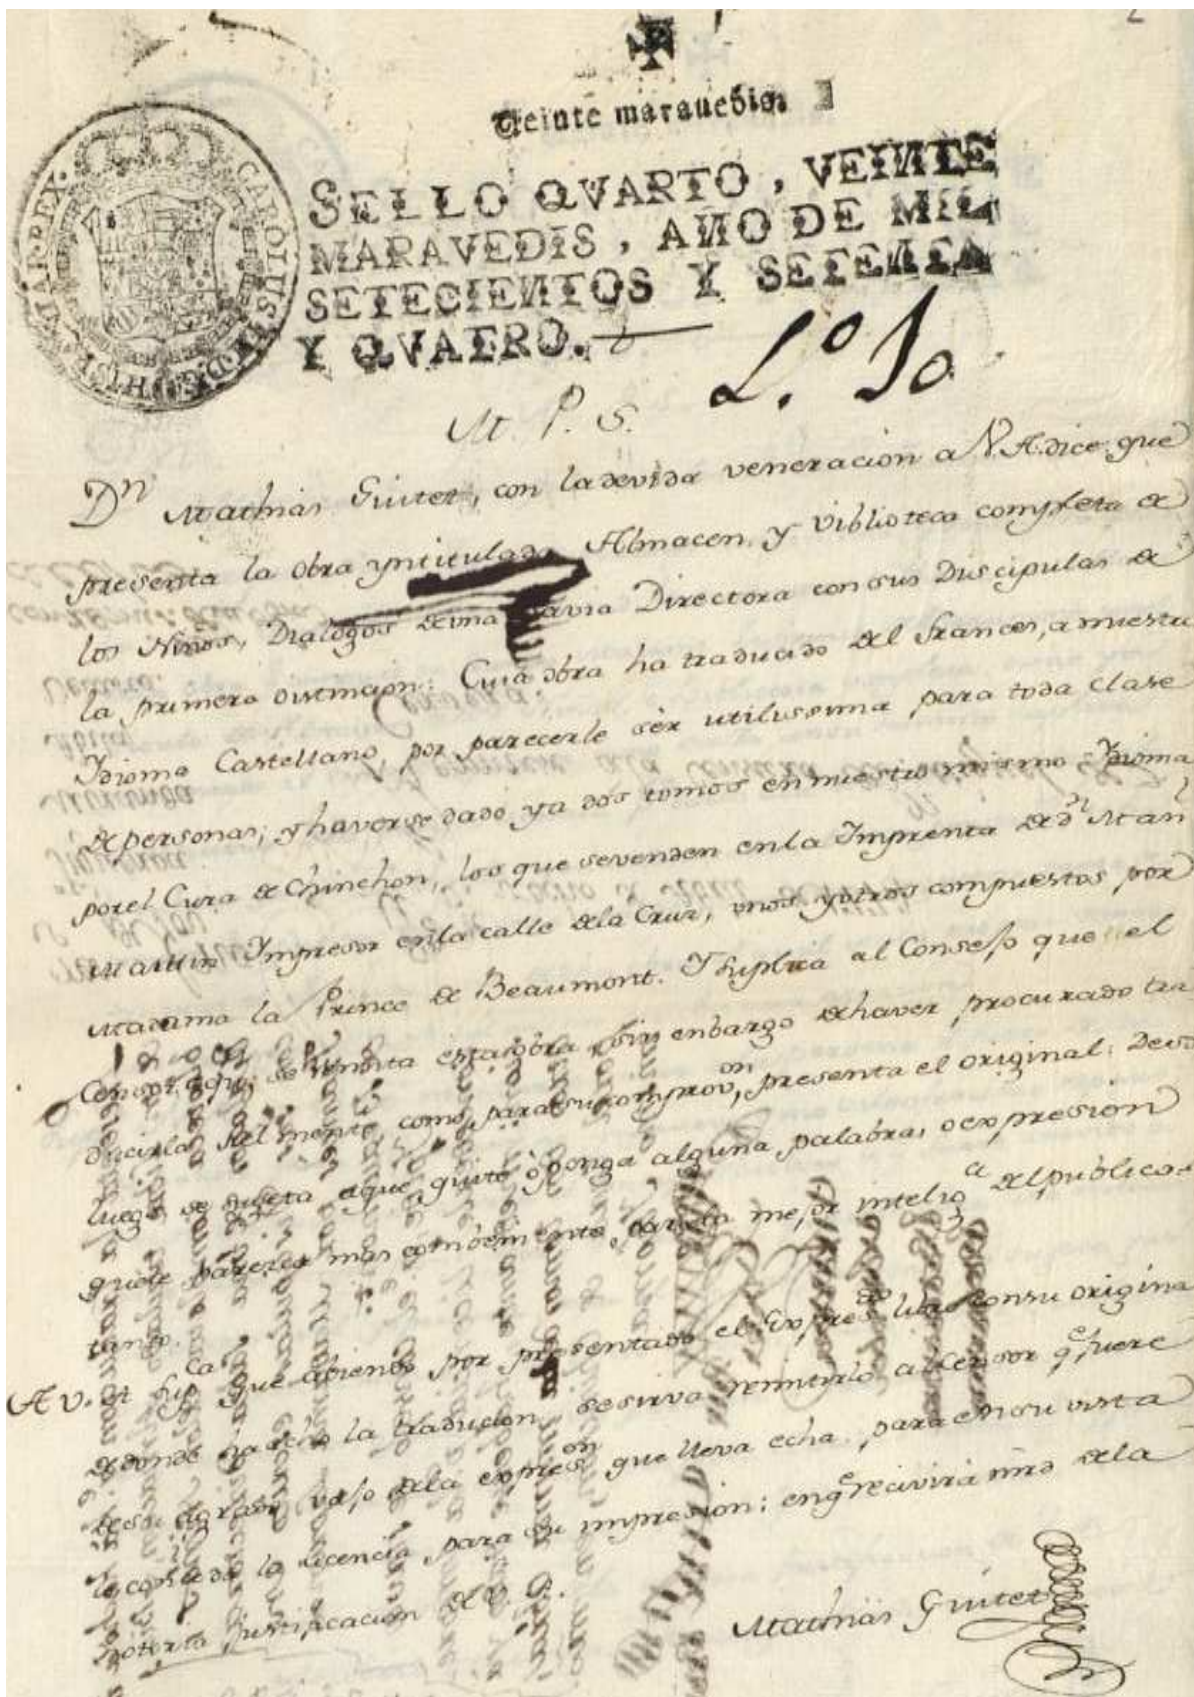 2
Veinte maravedis
SELLO QVARTO, VEINTE
MARAVEDIS, AÑO DE MIL
SETECIENTOS Y SETENTA
Y QVATRO.
CAROLUS III D G HISPANIAR REX
L.º 10
M. P. S.
Dn Mathias Guitet, con la devida veneracion a V. A. dice que
presenta la obra yntitulada Almacen, y Viblioteca completa de
los Niños, Dialogos de una Savia Directora con sus Discipulas de
la primera distincion: Cuia obra ha traducido del frances, a nuestro
Idioma Castellano, por parecerle sér utilissima para toda clase
de personas; y haverse dado ya dos tomos en nuestro mismo Idioma
por el Cura de Chinchon, los que se venden en la Imprenta de dn Manl
Martin Impresor en la calle de la Cruz, unos y otros compuestos por
Madama la Prince de Beaumont. Y Suplica al Consejo que el
Censor a quien se remita esta obra sin enbargo de haver procurado tra
ducirla fielmente como para su comprovon, presenta el original. Desde
luego se sujeta a que quite ò ponga alguna palabra, o expresion
que le parezca mas combeniente, para la mejor intelixa del publico
tanto.
A V. A. Supca que haviendo por presentado el Expresdo libro con su origina
de donde ha echo la traducion, se sirva remitirlo al Censor qe fuere
de su agrado vajo de la expreson que lleva echa para en su vista
le conceda la licencia para su impresion; en qe recivirá mrd de la
notoria justificacion de V. A.
Mathias Guitet